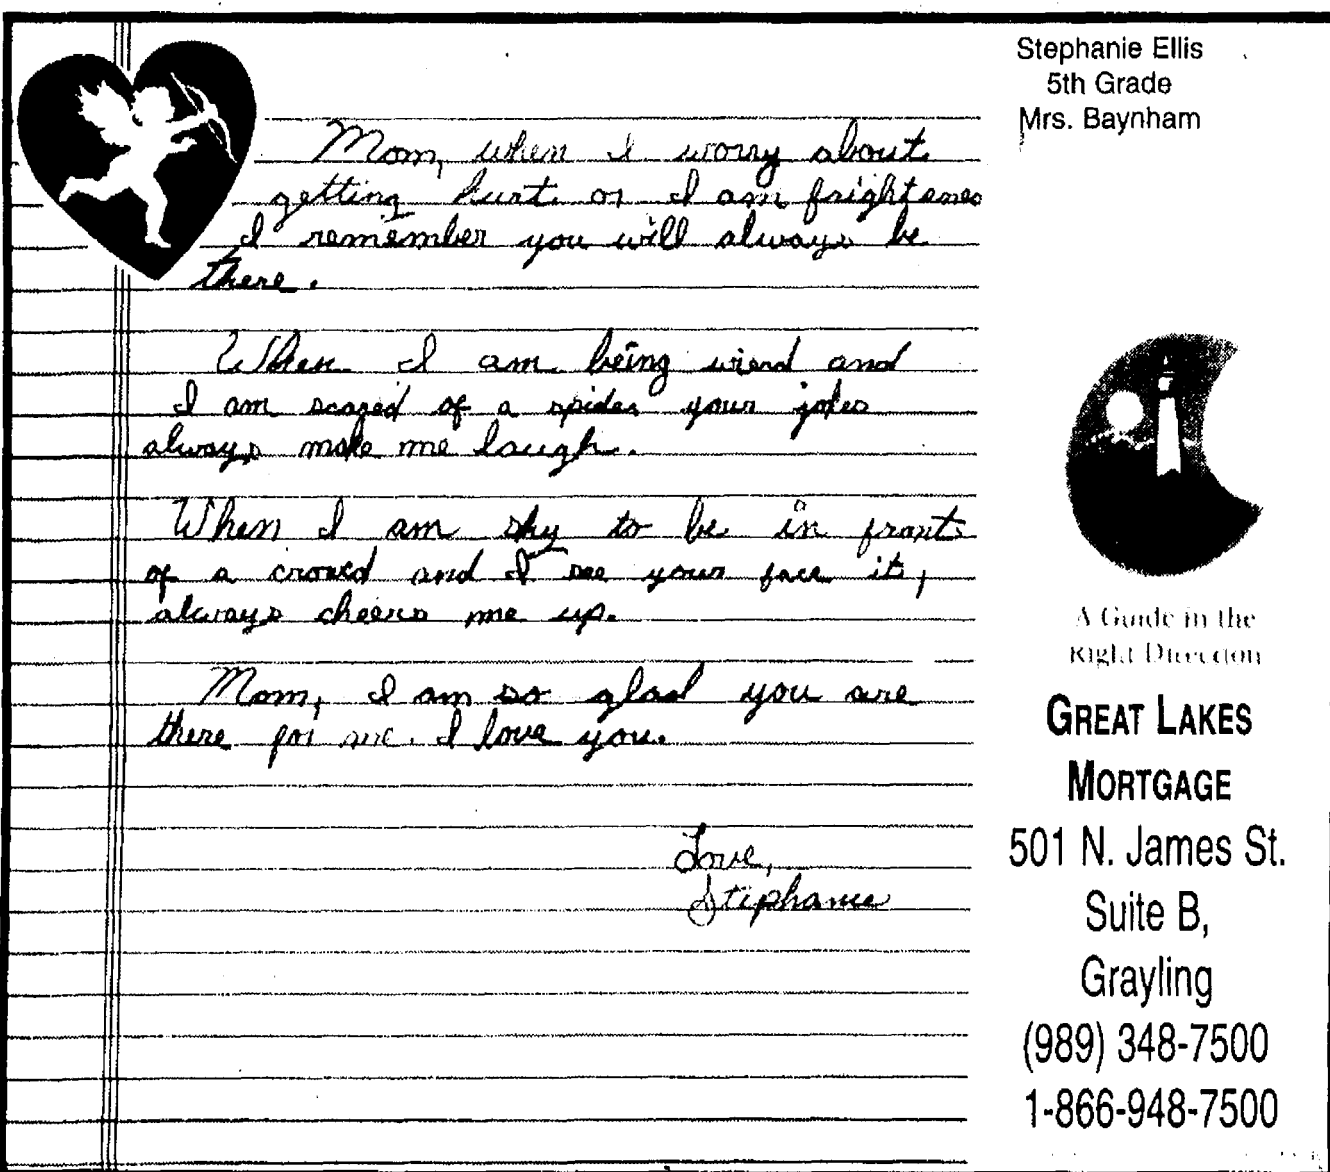 Mom, when I worry about
getting hurt or I am frightened
I remember you will always be
there.
When I am being wierd and
I am scared of a spider your jokes
always make me laugh.
When I am shy to be in front
of a crowd and I see your face it,
always cheers me up.
Mom, I am so glad you are
there for me. I love you.
Love,
Stephanie
Stephanie Ellis
5th Grade
Mrs. Baynham
A Guide in the
Right Direction
GREAT LAKES
MORTGAGE
501 N. James St.
Suite B,
Grayling
(989) 348-7500
1-866-948-7500